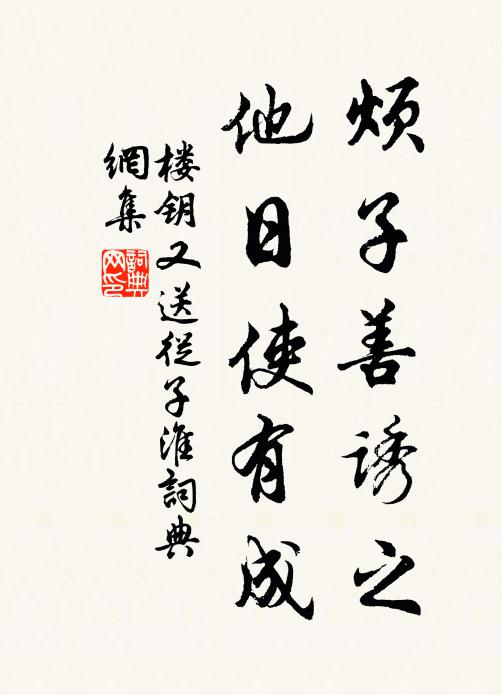 烦子善诱之
他日使有成
楼钥又送従子淮詞典
網集
詞典网印